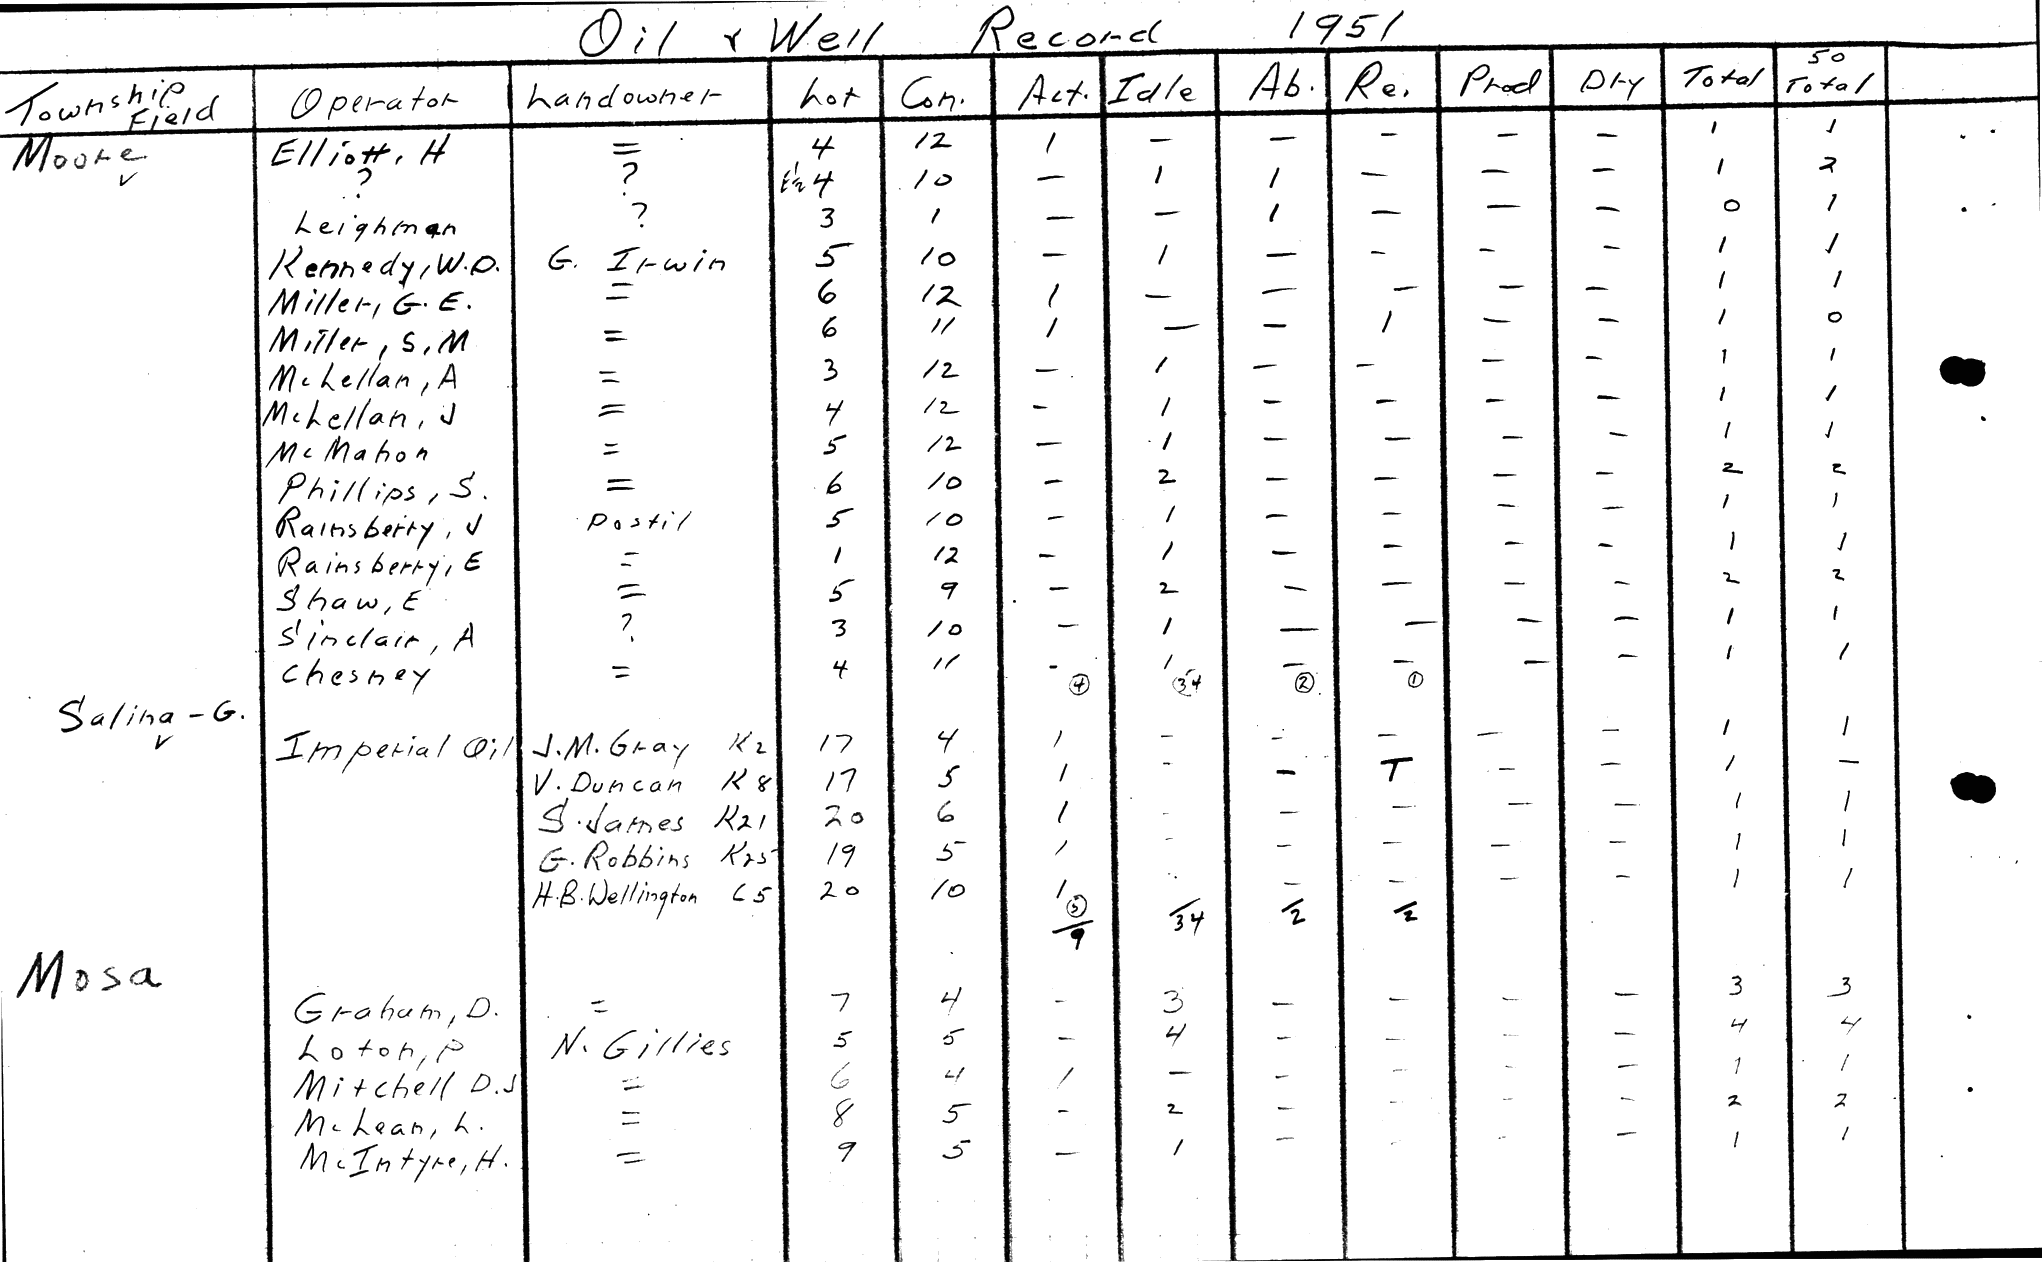 Oil & Well Record 1951
Township Field Operator Landowner Lot Con. Act. Idle Ab. Re. Prod Dry Total 50 Total
Moore Elliott, H = 4 12 1 — — — — — 1 1
? ? E½ 4 10 — 1 1 — — — 1 2
Leighman ? 3 1 — — 1 — — — 0 1
Kennedy, W.D. G. Irwin 5 10 — 1 — — — — 1 1
Miller, G. E. = 6 12 1 — — — — — 1 1
Miller, S. M = 6 11 1 — — 1 — — 1 0
McLellan, A = 3 12 — 1 — — — — 1 1
McLellan, J = 4 12 — 1 — — — — 1 1
McMahon = 5 12 — 1 — — — — 1 1
Phillips, S. = 6 10 — 2 — — — — 2 2
Rainsberry, J Postil 5 10 — 1 — — — — 1 1
Rainsberry, E = 1 12 — 1 — — — — 1 1
Shaw, E = 5 9 — 2 — — — — 2 2
Sinclair, A ? 3 10 — 1 — — — — 1 1
Chesney = 4 11 - 1 — — — — 1 1
4 34 2 1
Salina - G.
Imperial Oil J.M. Gray K2 17 4 1 - - — — — 1 1
V. Duncan K8 17 5 1 - — T — — 1 —
S. James K21 20 6 1 - — — — — 1 1
G. Robbins K25 19 5 1 - — — — — 1 1
H.B. Wellington C5 20 10 1 - — — — — 1 1
5
9 34 2 2
Mosa
Graham, D. = 7 4 - 3 — — — — 3 3
Loton, P N. Gillies 5 5 — 4 — — — — 4 4
Mitchell D.J = 6 4 1 — — — — — 1 1
McLean, L. = 8 5 - 2 — — — — 2 2
McIntyre, H. = 9 5 — 1 — — — — 1 1